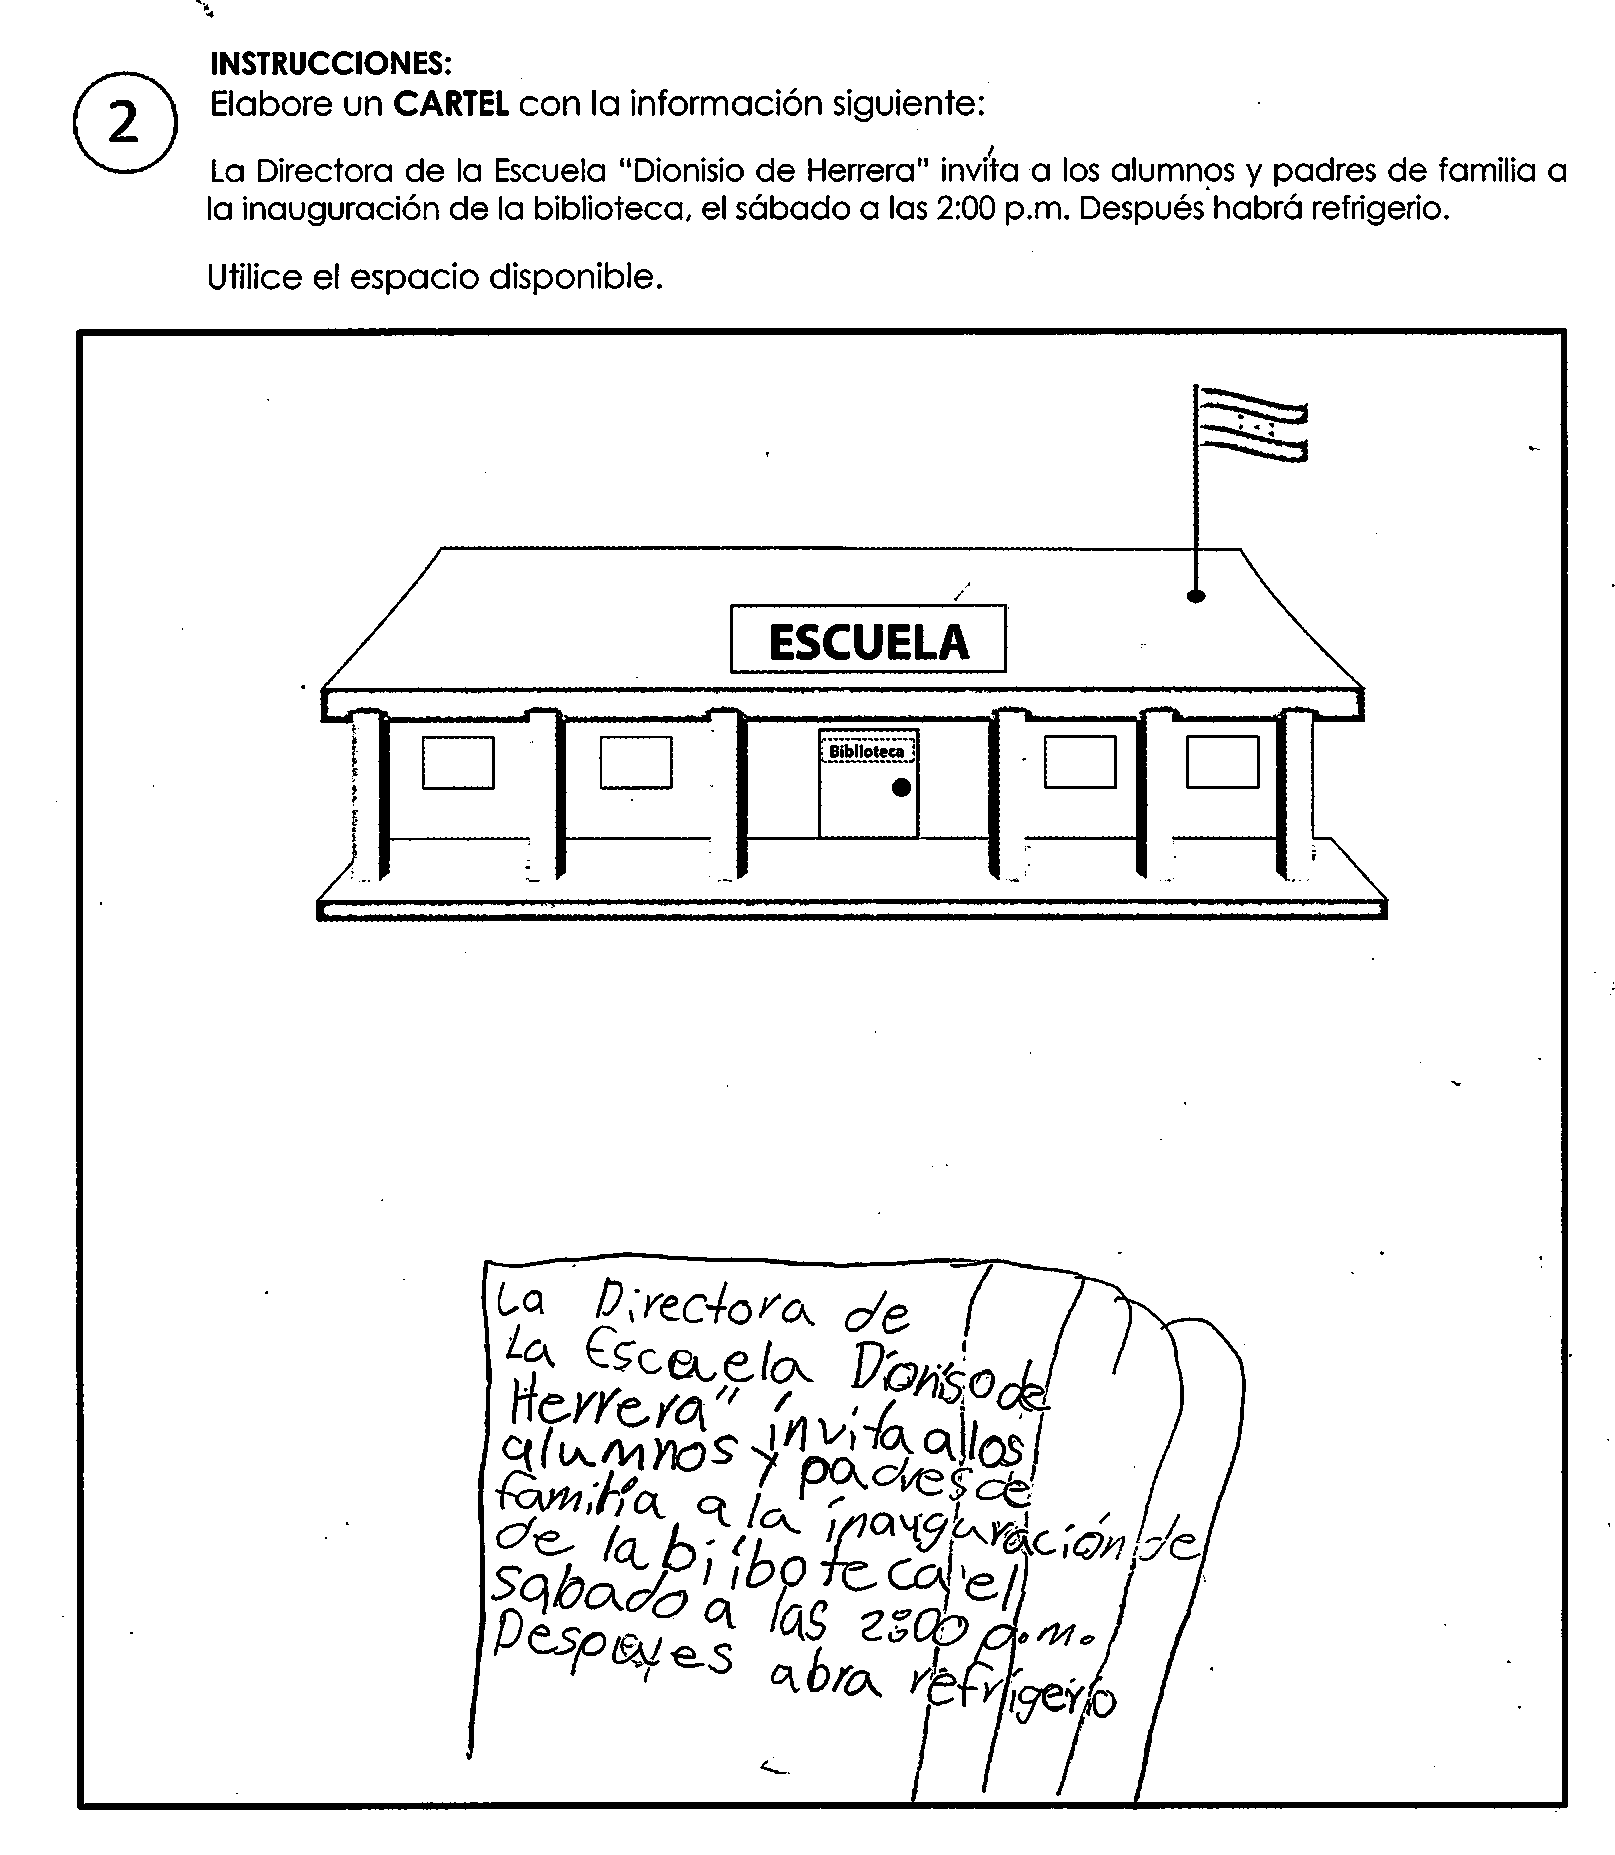 INSTRUCCIONES:
2
Elabore un CARTEL con la información siguiente:
La Directora de la Escuela "Dionisio de Herrera" invita a los alumnos y padres de familia a
la inauguración de la biblioteca, el sábado a las 2:00 p.m. Después habrá refrigerio.
Utilice el espacio disponible.
ESCUELA
Biblioteca
La Directora de
La Escuela Dioniso de
Herrera" invita allos
alumnos y padres de
familia a la inauguración de
de la biiboteca el
sabado a las 2:00 p.m.
Despues abra refrigerio